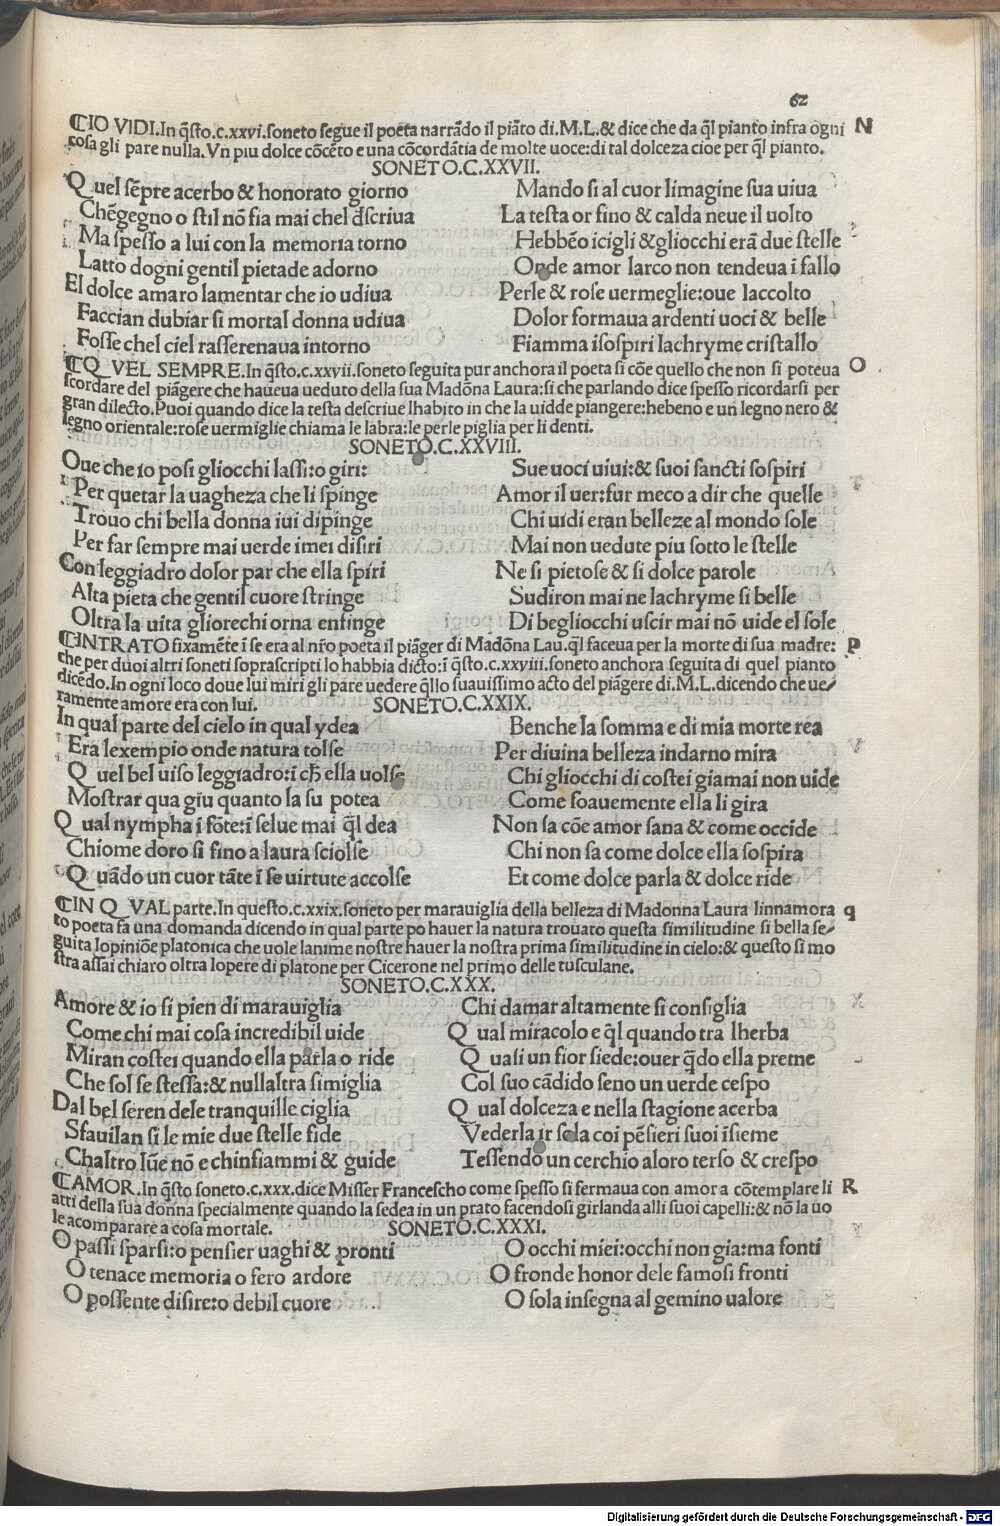 62
¶IO VIDI.In q̃sto.c.xxvi.soneto segue il poeta narrãdo il piãto di.M.L.& dice che da q̃l pianto infra ogni N
cosa gli pare nulla.Vn piu dolce cõcẽto e una cõcordãtia de molte uoce:di tal dolceza cioe per q̃l pianto.
SONETO.C.XXVII.
Quel sẽpre acerbo & honorato giorno
Mando si al cuor limagine sua uiua
Chẽgegno o stil nõ fia mai chel d̃scriua
Ma spesso a lui con la memoria torno
Latto dogni gentil pietade adorno
El dolce amaro lamentar che io udiua
Faccian dubiar si mortal donna udiua
Fosse chel ciel rasserenaua intorno
La testa or fino & calda neue il uolto
Hebbẽo icigli & gliocchi erã due stelle
Onde amor larco non tendeua ĩ fallo
Perle & rose uermeglie:oue laccolto
Dolor formaua ardenti uoci & belle
Fiamma isospiri lachryme cristallo
¶QVEL SEMPRE.In q̃sto.c.xxvii.soneto seguita pur anchora il poeta si cõe quello che non si poteua O
scordare del piãgere che haueua ueduto della sua Madõna Laura:si che parlando dice spesso ricordarsi per
gran dilecto.Puoi quando dice la testa descriue lhabito in che la uidde piangere:hebeno e un legno nero &
legno orientale:rose uermiglie chiama le labra:le perle piglia per li denti.
SONETO.C.XXVIII.
Oue che io posi gliocchi lassi:o giri:
Per quetar la uagheza che li spinge
Trouo chi bella donna iui dipinge
Per far sempre mai uerde imei disiri
Con leggiadro dolor par che ella spiri
Alta pieta che gentil cuore stringe
Oltra la uita gliorechi orna enfinge
Sue uoci uiui:& suoi sancti sospiri
Amor il uer:fur meco a dir che quelle
Chi uidi eran belleze al mondo sole
Mai non uedute piu sotto le stelle
Ne si pietose & si dolce parole
Sudiron mai ne lachryme si belle
Di begliocchi uscir mai nõ uide el sole
¶INTRATO fixamẽte ĩ se era al nr̃o poeta il piãger di Madõna Lau.q̃l faceua per la morte di sua madre: P
che per duoi altri soneti soprascripti lo habbia dicto:ĩ q̃sto.c.xxviii.soneto anchora seguita di quel pianto
dicẽdo.In ogni loco doue lui miri gli pare uedere q̃llo suauissimo acto del piãgere di.M.L.dicendo che ue/
ramente amore era con lui. SONETO.C.XXIX.
In qual parte del cielo in qual ydea
Era lexempio onde natura tolse
Quel bel uiso leggiadro:ĩ ch̃ ella uolse
Mostrar qua giu quanto la su potea
Qual nympha ĩ fõte:ĩ selue mai q̃l dea
Chiome doro si fino a laura sciolse
Quãdo un cuor tãte ĩ se uirtute accolse
Benche la somma e di mia morte rea
Per diuina belleza indarno mira
Chi gliocchi di costei giamai non uide
Come soauemente ella li gira
Non sa cõe amor sana & come occide
Chi non sa come dolce ella sospira
Et come dolce parla & dolce ride
¶IN QVAL parte.In questo.c.xxix.soneto per marauiglia della belleza di Madonna Laura linnamora q
to poeta fa una domanda dicendo in qual parte po hauer la natura trouato questa similitudine si bella se/
guita lopiniõe platonica che uole lanime nostre hauer la nostra prima similitudine in cielo:& questo si mo
stra assai chiaro oltra lopere di platone per Cicerone nel primo delle tusculane.
SONETO.C.XXX.
Amore & io si pien di marauiglia
Come chi mai cosa incredibil uide
Miran costei quando ella parla o ride
Che sol se stessa:& nullaltra simiglia
Dal bel seren dele tranquille ciglia
Sfauilan si le mie due stelle fide
Chaltro lũe nõ e chinfiammi & guide
Chi damar altamente si consiglia
Qual miracolo e q̃l quando tra lherba
Quasi un fior siede:ouer q̃do ella preme
Col suo cãdido seno un uerde cespo
Qual dolceza e nella stagione acerba
Vederla ir sola coi pẽsieri suoi ĩsieme
Tessendo un cerchio aloro terso & crespo
¶AMOR.In q̃sto soneto.c.xxx.dice Misser Francescho come spesso si fermaua con amor a cõtemplare li R
atti della sua donna specialmente quando la sedea in un prato facendosi girlanda alli suoi capelli:& nõ la uo
le acomparare a cosa mortale. SONETO.C.XXXI.
O passi sparsi:o pensier uaghi & pronti
O tenace memoria o fero ardore
O possente disire:o debil cuore
O occhi miei:occhi non gia:ma fonti
O fronde honor dele famosi fronti
O sola insegna al gemino ualore
Digitalisierung gefördert durch die Deutsche Forschungsgemeinschaft - DFG